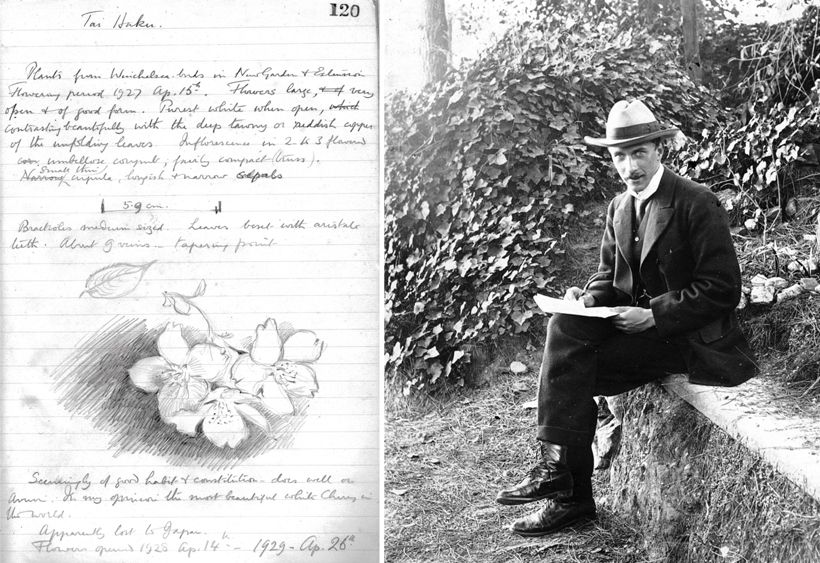 120
Tai Haku.
Plants from Winchelsea. buds in New Garden & Extension
Flowering period 1927 Ap. 15th. Flowers large, & of very
open & of good form. Purest white when open, which
contrasting beautifully with the deep tawny or reddish copper
of the unfolding leaves. Inflorescence in 2 to 3 flowered
umbellose corymb, fairly compact (truss).
Narrow small thin cupula, longish & narrow sepals
5.9 cm.
Bracteoles medium sized. Leaves beset with aristate
teeth. About 9 veins - tapering point
Seemingly of good habit & constitution - does well on
Avium. In my opinion the most beautiful white Cherry in
the world.
Apparently lost to Japan.
Flowers opened 1928 Ap. 14th - 1929 - Ap. 26th